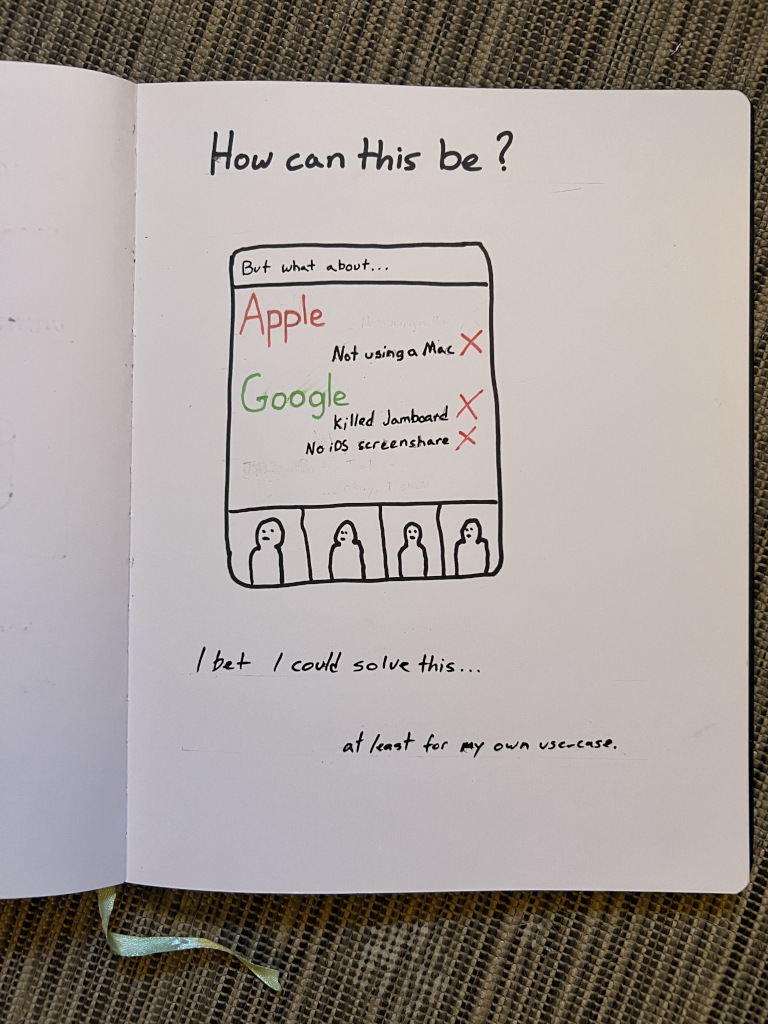 How can this be?
But what about...
Apple
Not using a Mac X
Google
killed Jamboard X
No iOS screenshare X
I bet I could solve this...
at least for my own use-case.